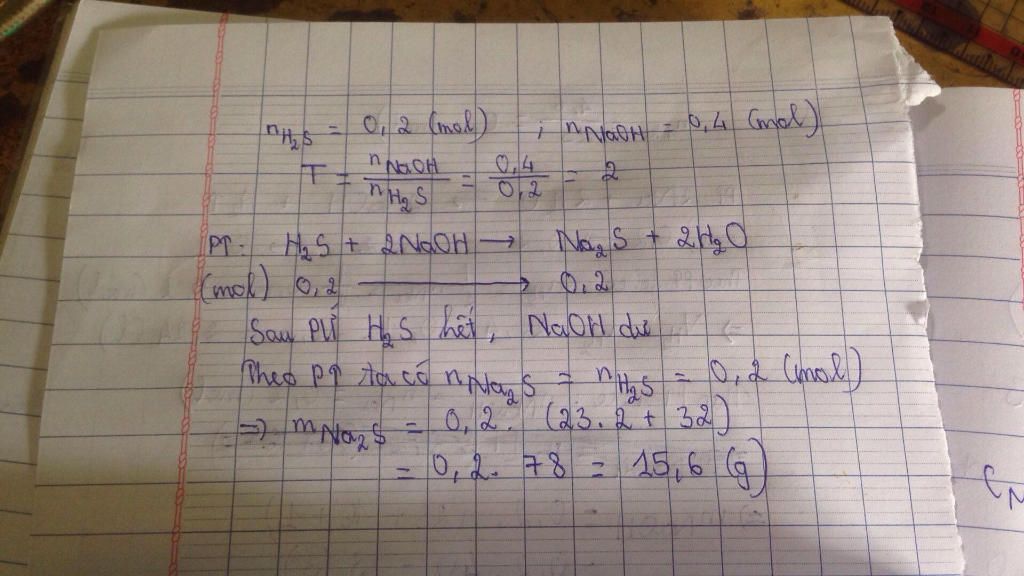 nH₂S = 0,2 (mol) ; nNaOH = 0,4 (mol)
T = nNaOH/nH₂S = 0,4/0,2 = 2
PT: H₂S + 2NaOH → Na₂S + 2H₂O
(mol) 0,2 → 0,2
Sau PƯ H₂S hết, NaOH dư
Theo PT ta có nNa₂S = nH₂S = 0,2 (mol)
=> mNa₂S = 0,2. (23.2 + 32)
= 0,2. 78 = 15,6 (g)